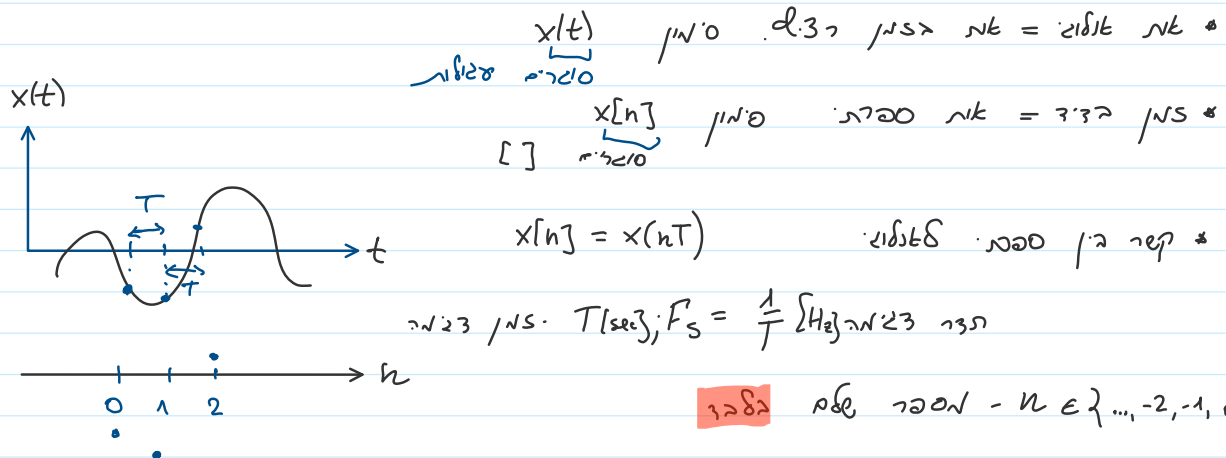 * אות אנלוגי = אות בזמן רציף. סימון x(t)
סוגריים עגולות
* זמן בדיד = אות ספרתי סימון x[n]
סוגריים [ ]
* קשר בין ספרתי לאנלוגי. x[n] = x(nT)
תדר דגימה F_S = 1/T [Hz] ; T[sec] זמן דגימה
n ∈ {..., -2, -1, - מספר שלם בלבד
x(t)
T
t
T
n
0 1 2